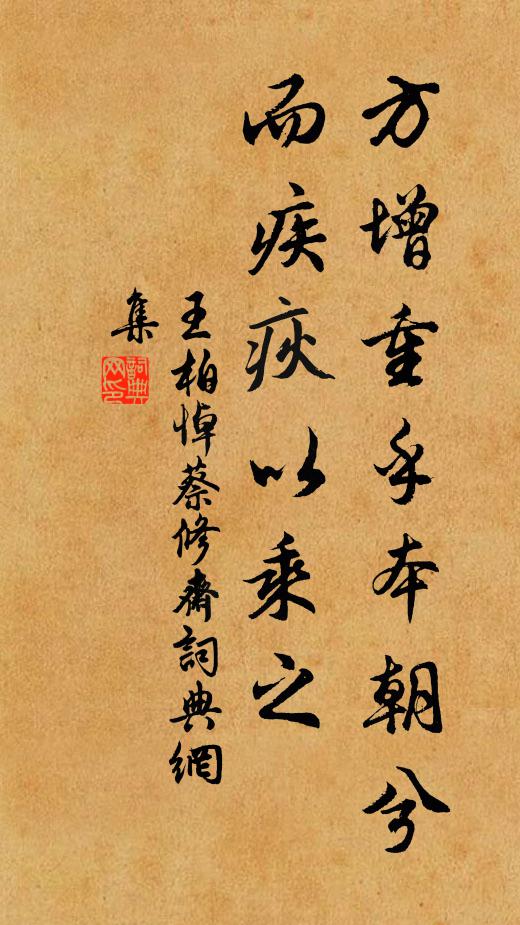 方增重乎本朝兮
而疾疢以乘之
王柏悼蔡修齋詞典網
集
詞典网印